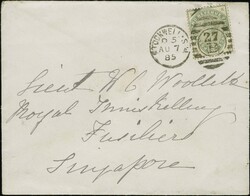 STOCKWELL S.W
D 5
AU 7
85
27
Lieut W C Woollett
Royal Inniskilling
Fusiliers
Singapore